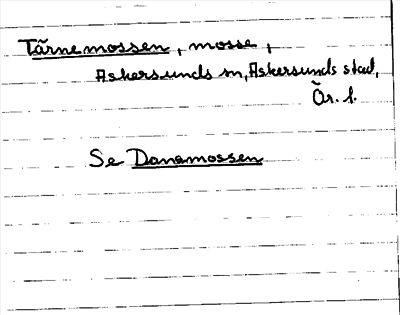 Tärnemossen, mosse,
Askersunds sn, Askersunds stad,
Ör. l.
Se Danamossen